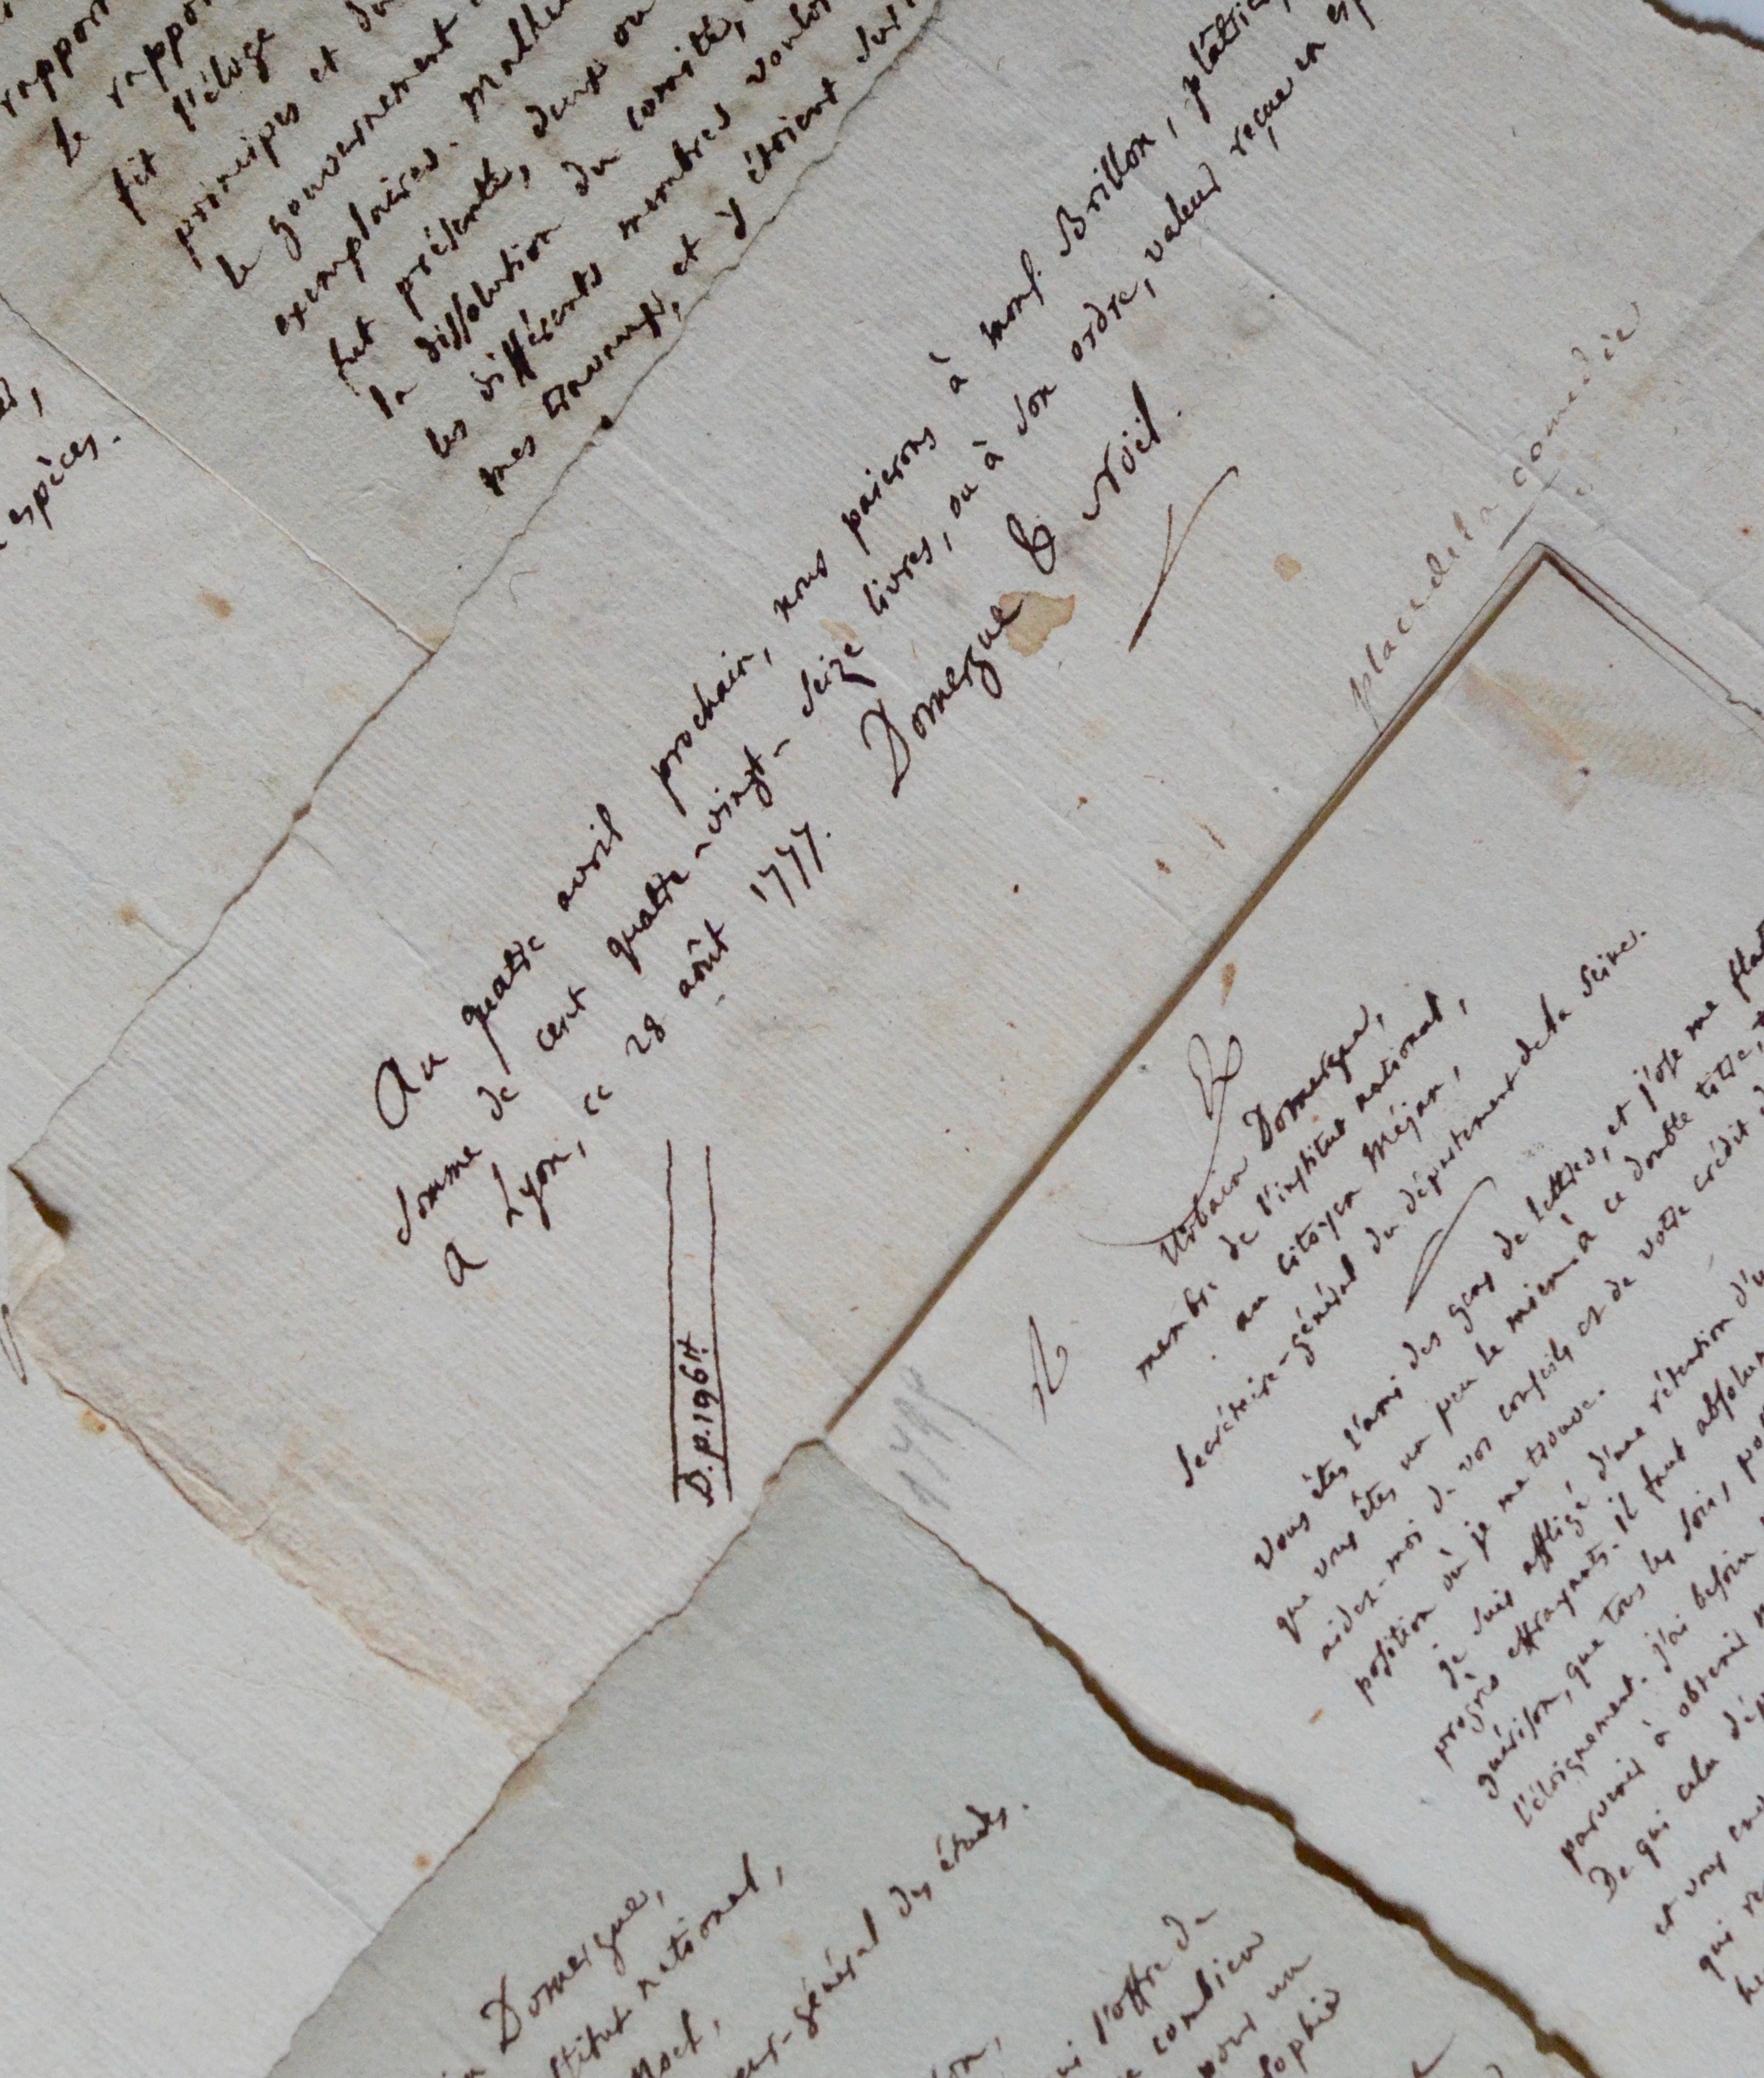 espèces.
rapport
le rappo
fit l'éloge
principes et du
le gouvernement
exemplaires. Malheu
fut présenté, deux ou
la dissolution du comité,
les différents membres voulo
mes travaux, et y étoient sur
Au quatre avril prochain, nous paierons à monsr. Brillon, plâtrie
somme de cent quatre-vingt-seize livres, ou à son ordre, valeur reçue en esp
A Lyon, ce 28 août 1777. Domergue & Noël.
B. p. 196 ₶
place de la comédie
Urbain Domergue,
membre de l'institut national,
au citoyen Méjan,
Secrétaire-général du département de la Seine.
Vous êtes l'ami des gens de lettres, et j'ose me flatt
que vous êtes un peu le mien. à ce double titre,
aidez-moi de vos conseils et de votre crédit d
position où je me trouve.
Je suis affligé d'une rétention d'u
progrès effrayants. il faut absolum
guérison, que tous les soins, po
l'éloignement. j'ai besoin
parvenir à obtenir
De qui cela dép
et vous
qui
Domergue,
stitut national,
eur-général des études.
l'offre de
combien
pour un
losophie